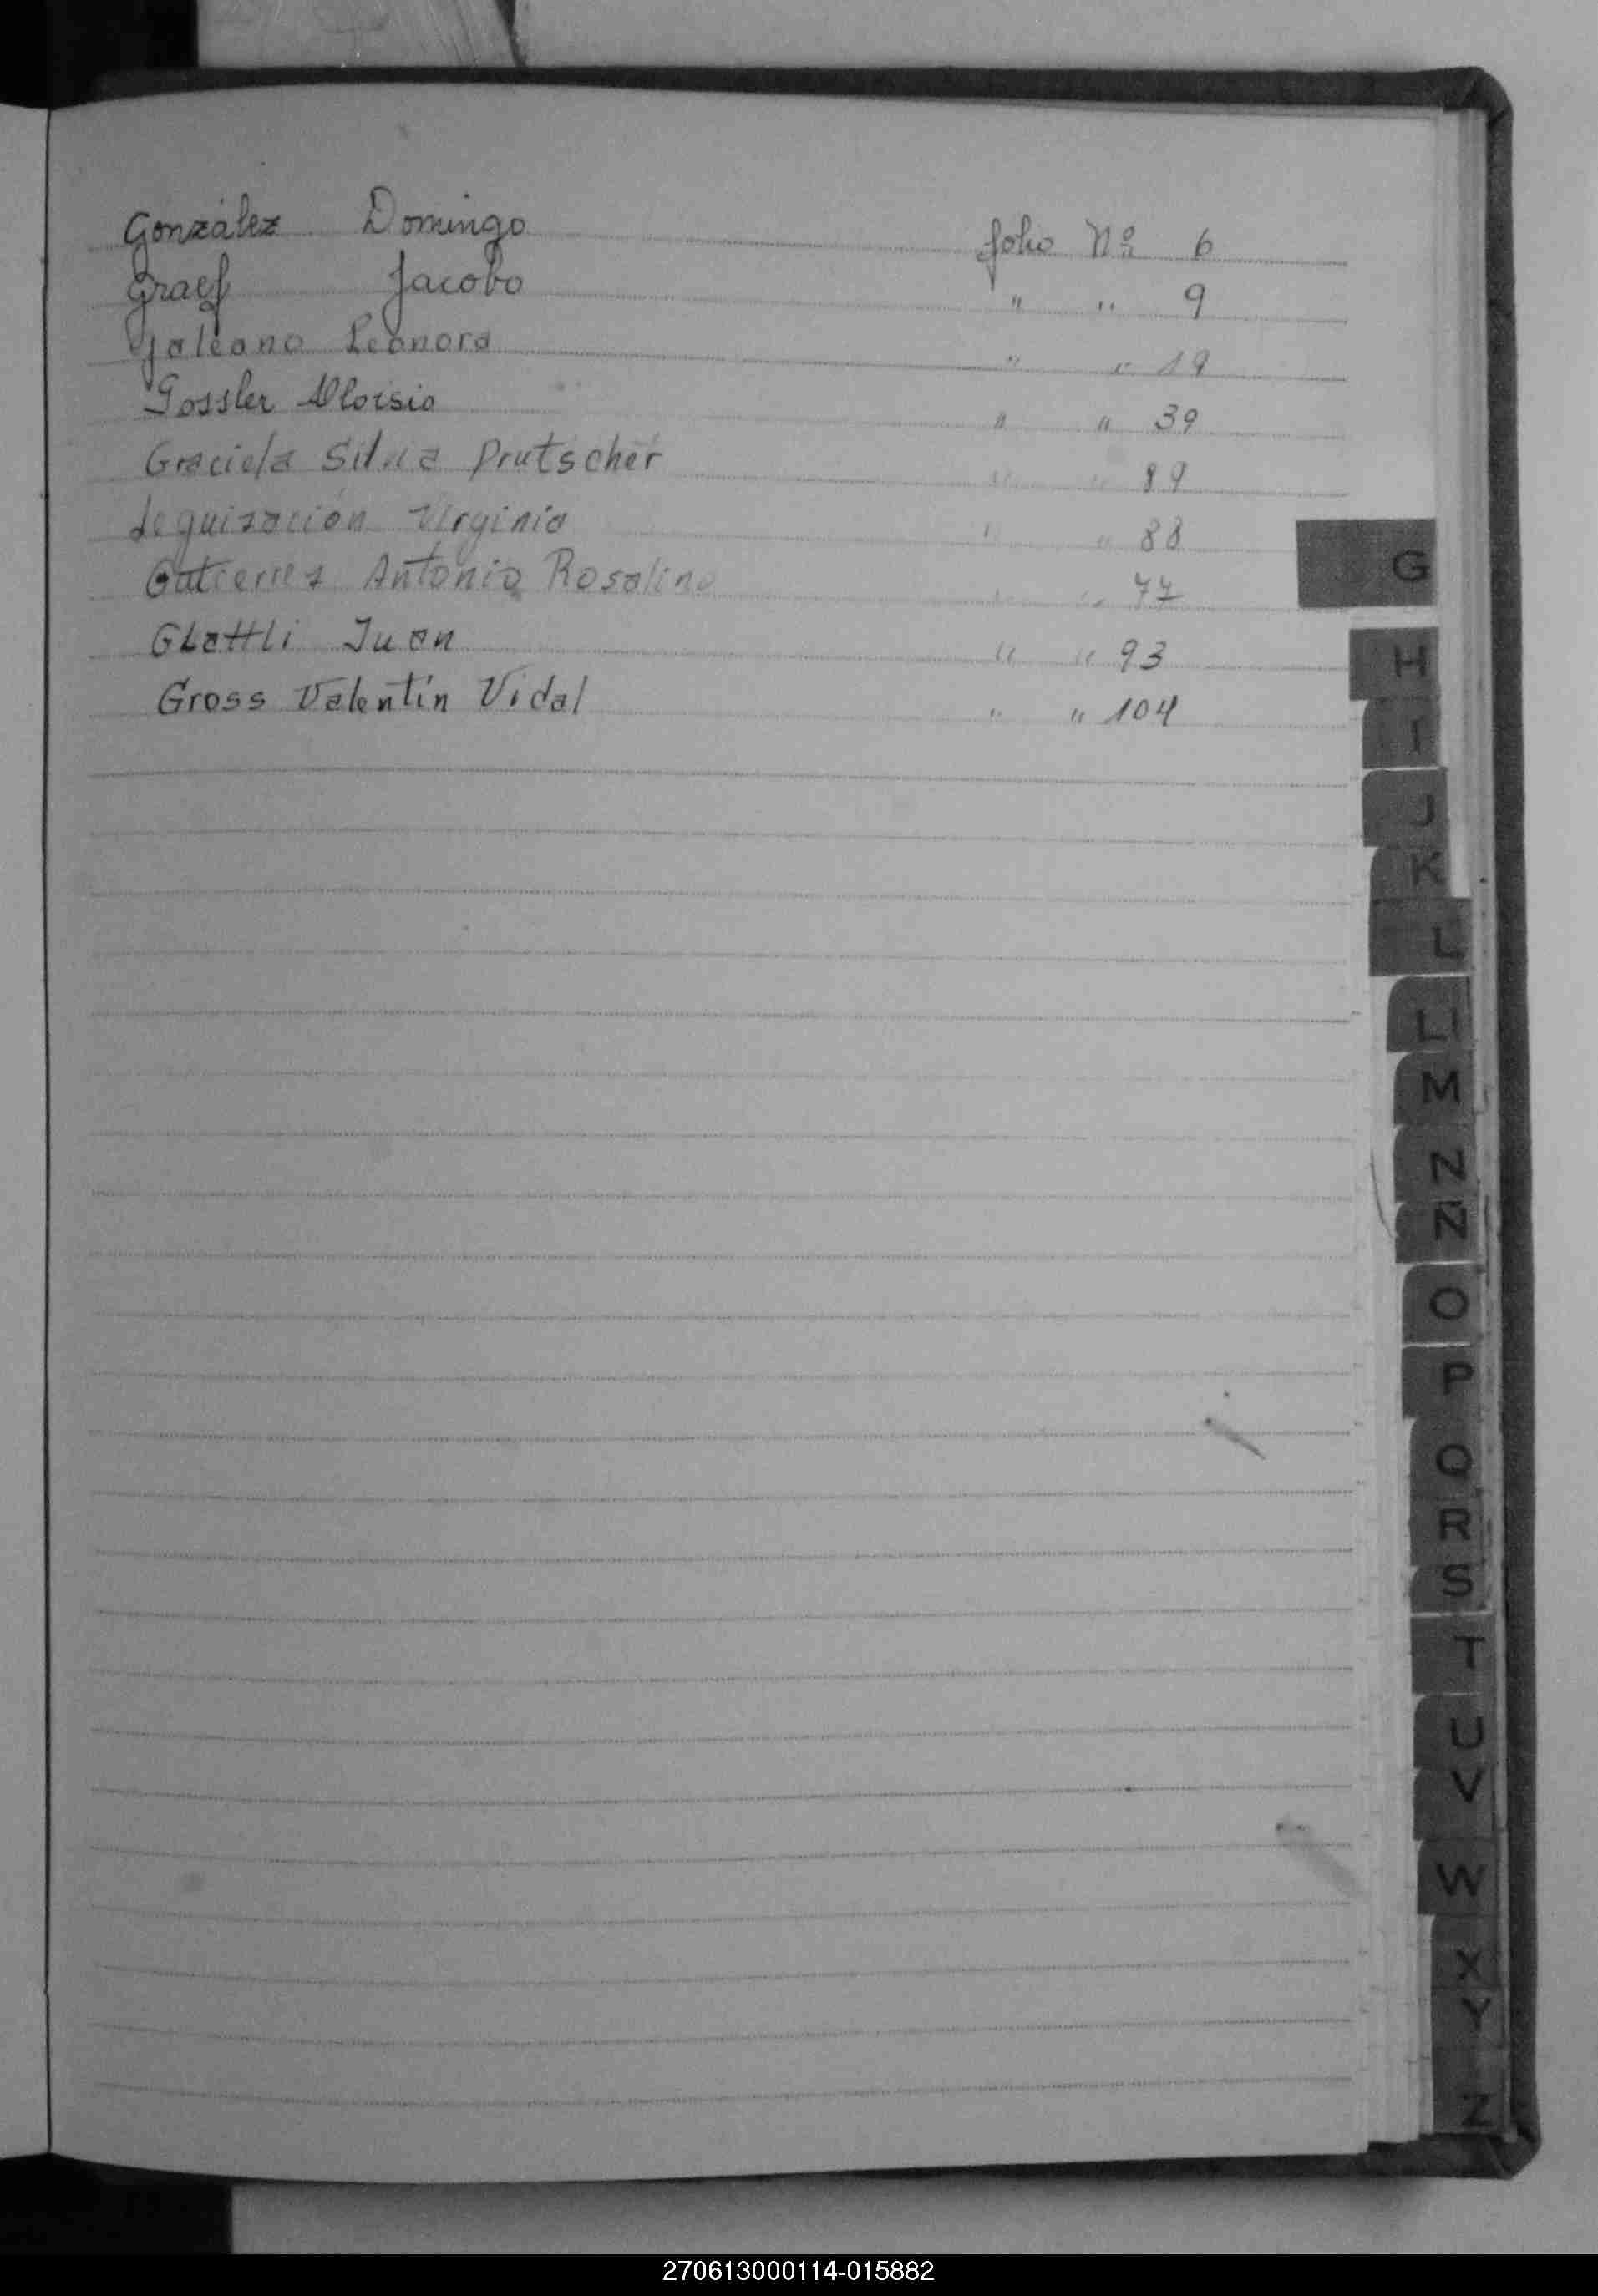 González Domingo folio Nº 6
Graef Jacobo " " 9
Galeano Leonora " " 19
Gossler Aloisio " " 39
Graciela Silvia Prutscher " " 89
Leguización Virginia " " 88
Gutierrez Antonio Rosalino " " 77
Glattli Juan " " 93
Gross Valentín Vidal " " 104
G
H
I
J
K
L
Ll
M
N
Ñ
O
P
Q
R
S
T
U
V
W
X
Y
Z
270613000114-015882